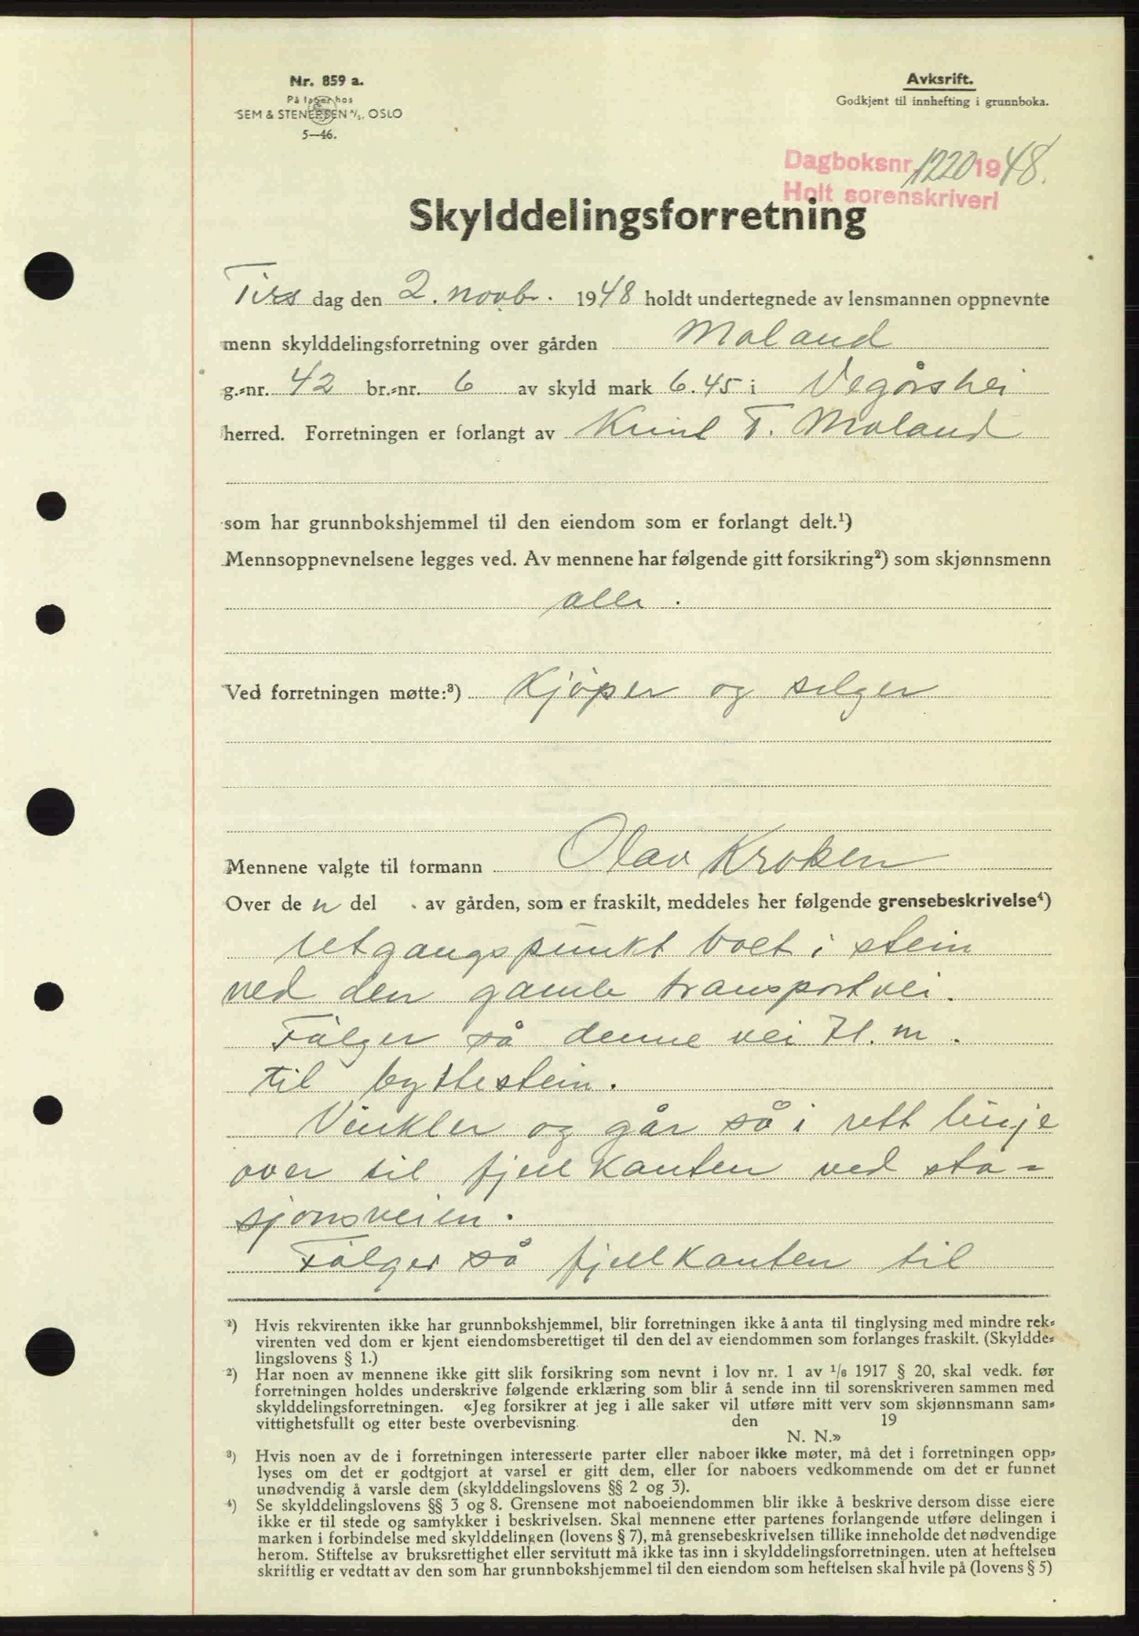 Nr. 859 a.
På lager hos
SEM & STENERSEN A/S, OSLO
5—46.
Avksrift.
Godkjent til innhefting i grunnboka.
Dagboksnr. 1220 1948.
Holt sorenskriveri
Skylddelingsforretning
Tirs dag den 2. novbr. 1948 holdt undertegnede av lensmannen oppnevnte
menn skylddelingsforretning over gården Moland
g.-nr. 42 br.-nr. 6 av skyld mark 6.45 i Vegårshei
herred. Forretningen er forlangt av Knut T. Moland
som har grunnbokshjemmel til den eiendom som er forlangt delt.¹)
Mennsoppnevnelsene legges ved. Av mennene har følgende gitt forsikring²) som skjønnsmenn
alle.
Ved forretningen møtte:³) Kjöper og selger
Mennene valgte til formann Olav Kroken
Over de n del . av gården, som er fraskilt, meddeles her følgende grensebeskrivelse⁴)
Utgangspunkt bolt i stein
ved den gamle transportvei.
Fölger så denne vei 71. m.
til byttestein.
Vinkler og går så i rett linje
over til fjellkanten ved sta=
sjonsveien.
Fölger så fjellkanten til
¹) Hvis rekvirenten ikke har grunnbokshjemmel, blir forretningen ikke å anta til tinglysing med mindre rek-
virenten ved dom er kjent eiendomsberettiget til den del av eiendommen som forlanges fraskilt. (Skyldde-
lingslovens § 1.)
²) Har noen av mennene ikke gitt slik forsikring som nevnt i lov nr. 1 av ¹/₆ 1917 § 20, skal vedk. før
forretningen holdes underskrive følgende erklæring som blir å sende inn til sorenskriveren sammen med
skylddelingsforretningen. «Jeg forsikrer at jeg i alle saker vil utføre mitt verv som skjønnsmann sam-
vittighetsfullt og etter beste overbevisning. den 19
N. N.»
³) Hvis noen av de i forretningen interesserte parter eller naboer ikke møter, må det i forretningen opp-
lyses om det er godtgjort at varsel er gitt dem, eller for naboers vedkommende om det er funnet
unødvendig å varsle dem (skylddelingslovens §§ 2 og 3).
⁴) Se skylddelingslovens §§ 3 og 8. Grensene mot naboeiendommen blir ikke å beskrive dersom disse eiere
ikke er til stede og samtykker i beskrivelsen. Skal mennene etter partenes forlangende utføre delingen i
marken i forbindelse med skylddelingen (lovens § 7), må grensebeskrivelsen tillike inneholde det nødvendige
herom. Stiftelse av bruksrettighet eller servitutt må ikke tas inn i skylddelingsforretningen. uten at heftelsen
skriftlig er vedtatt av den som har grunnbokshjemmel til den eiendom som heftelsen skal hvile på (lovens § 5)